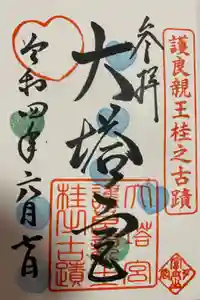 護良親王桂之古蹟
奉拝
大塔宮
大塔宮
護良親王
桂之古蹟
令和四年六月七日